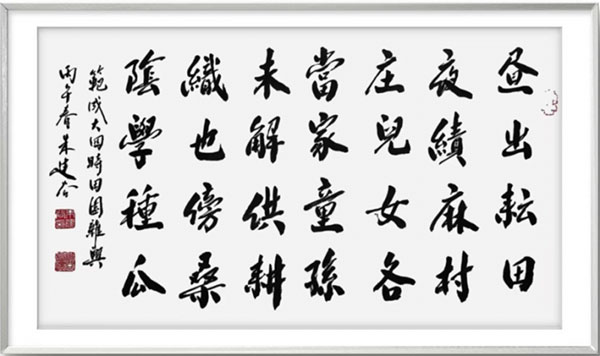 昼出耘田
夜績麻村
庄兒女各
當家童孫
未解供耕
織也傍桑
陰學種瓜
範成大四時田園雜興
丙午春朱建